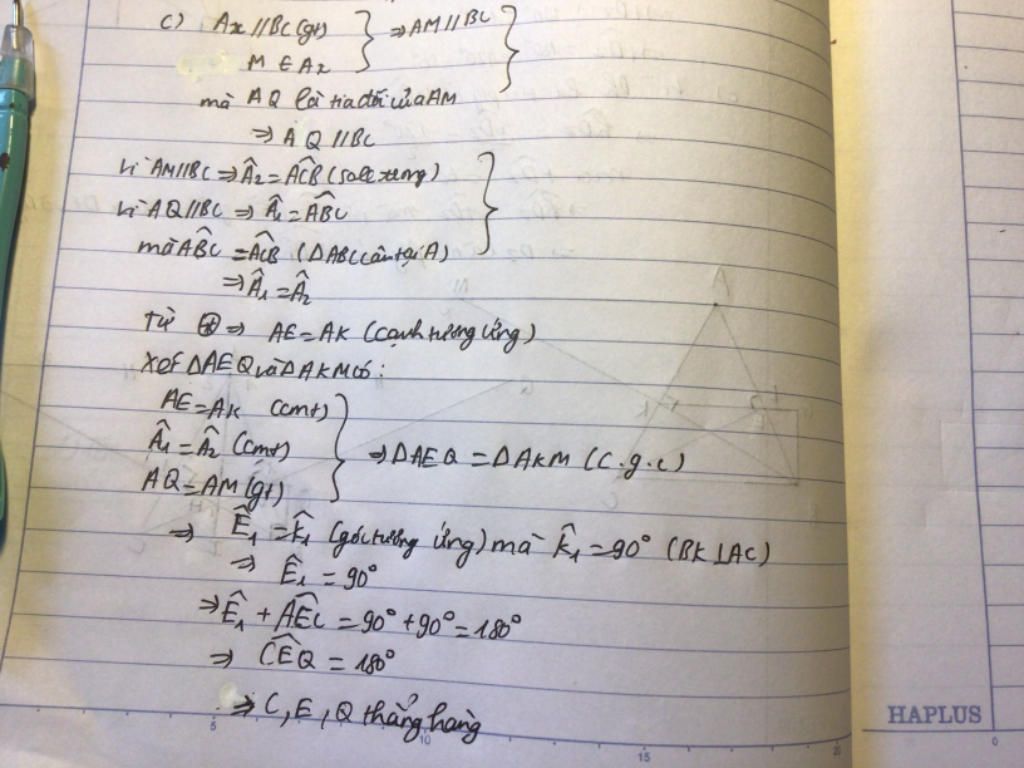 c) Ax // BC (gt) ⇒ AM // BC
M ∈ Ax
mà AQ là tia đối của AM
⇒ AQ // BC
Vì AM // BC ⇒ Â₂ = ACB̂ (so le trong)
Vì AQ // BC ⇒ Â₁ = ABĈ
mà ABĈ = ACB̂ (ΔABC cân tại A)
⇒ Â₁ = Â₂
Từ ⊛ ⇒ AE = AK (cạnh tương ứng)
Xét ΔAEQ và ΔAKM có:
AE = AK (cmt)
Â₁ = Â₂ (cmt) ⇒ ΔAEQ = ΔAKM (c.g.c)
AQ = AM (gt)
⇒ Ê₁ = K̂₁ (góc tương ứng) mà K̂₁ = 90° (BK ⊥ AC)
⇒ Ê₁ = 90°
⇒ Ê₁ + AEĈ = 90° + 90° = 180°
⇒ CEQ̂ = 180°
⇒ C, E, Q thẳng hàng
HAPLUS
5 10 15 20 0